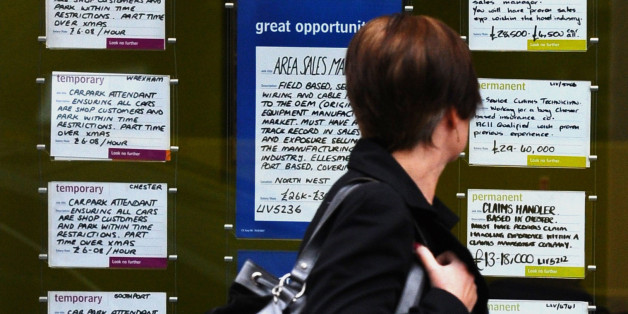 RESTRICTIONS. PART TIME
OVER XMAS
£6.08 / HOUR
Look no further
temporary WREXHAM
CARPARK ATTENDANT
ENSURING ALL CARS
ARE SHOP CUSTOMERS
AND PARK WITHIN TIME
RESTRICTIONS. PART TIME
OVER XMAS
£6.08/HOUR
Look no further
temporary CHESTER
CARPARK ATTENDANT
ENSURING ALL CARS
ARE SHOP CUSTOMERS
AND PARK WITHIN TIME
RESTRICTIONS. PART TIME
OVER XMAS
£6.08/HOUR
Look no further
temporary SOUTHPORT
CAR PARK ATTENDANT
great opportunit
AREA SALES MA
FIELD BASED, SE
WIRING AND CABLE
TO THE OEM (ORIGI
EQUIPMENT MANUFAC
MARKET. MUST HAVE
TRACK RECORD IN SALES
AND EXPOSURE SELLI
THE MANUFACTURIN
INDUSTRY. ELLESME
PORT BASED, COVERI
NORTH WEST
£26K-£3
LIV5236
great
sales manager.
You will have proven sales
exp within the hotel industry
Look no further
permanent
Senior Claims Technician
Working for a long
based insurance co.
ACII Qualified with proven
previous experience.
£29-40,000
Look no further
permanent
CLAIMS HANDLER
BASED IN CHESTER.
MUST HAVE PREVIOUS CLAIM
HANDLING EXPERIENCE WITHIN A
CLAIMS MANAGEMENT COMPANY.
£13-18,000 LIV5212
Look no further
permanent